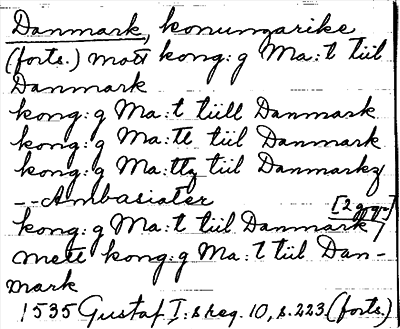 Danmark, konungarike
(forts.) mott kong: g Ma:t tiil
Danmark
kong: g Ma:t tiill Danmark
kong: g Ma:tt tiil Danmark
kong: g Ma:ttz tiil Danmarkz
--Ambasiater [2 ggr]
kong: g Ma:t tiil Danmark/
mett kong: g Ma:t tiil Dan-
mark
1535 Gustaf I:s reg. 10, s. 223. (forts.)